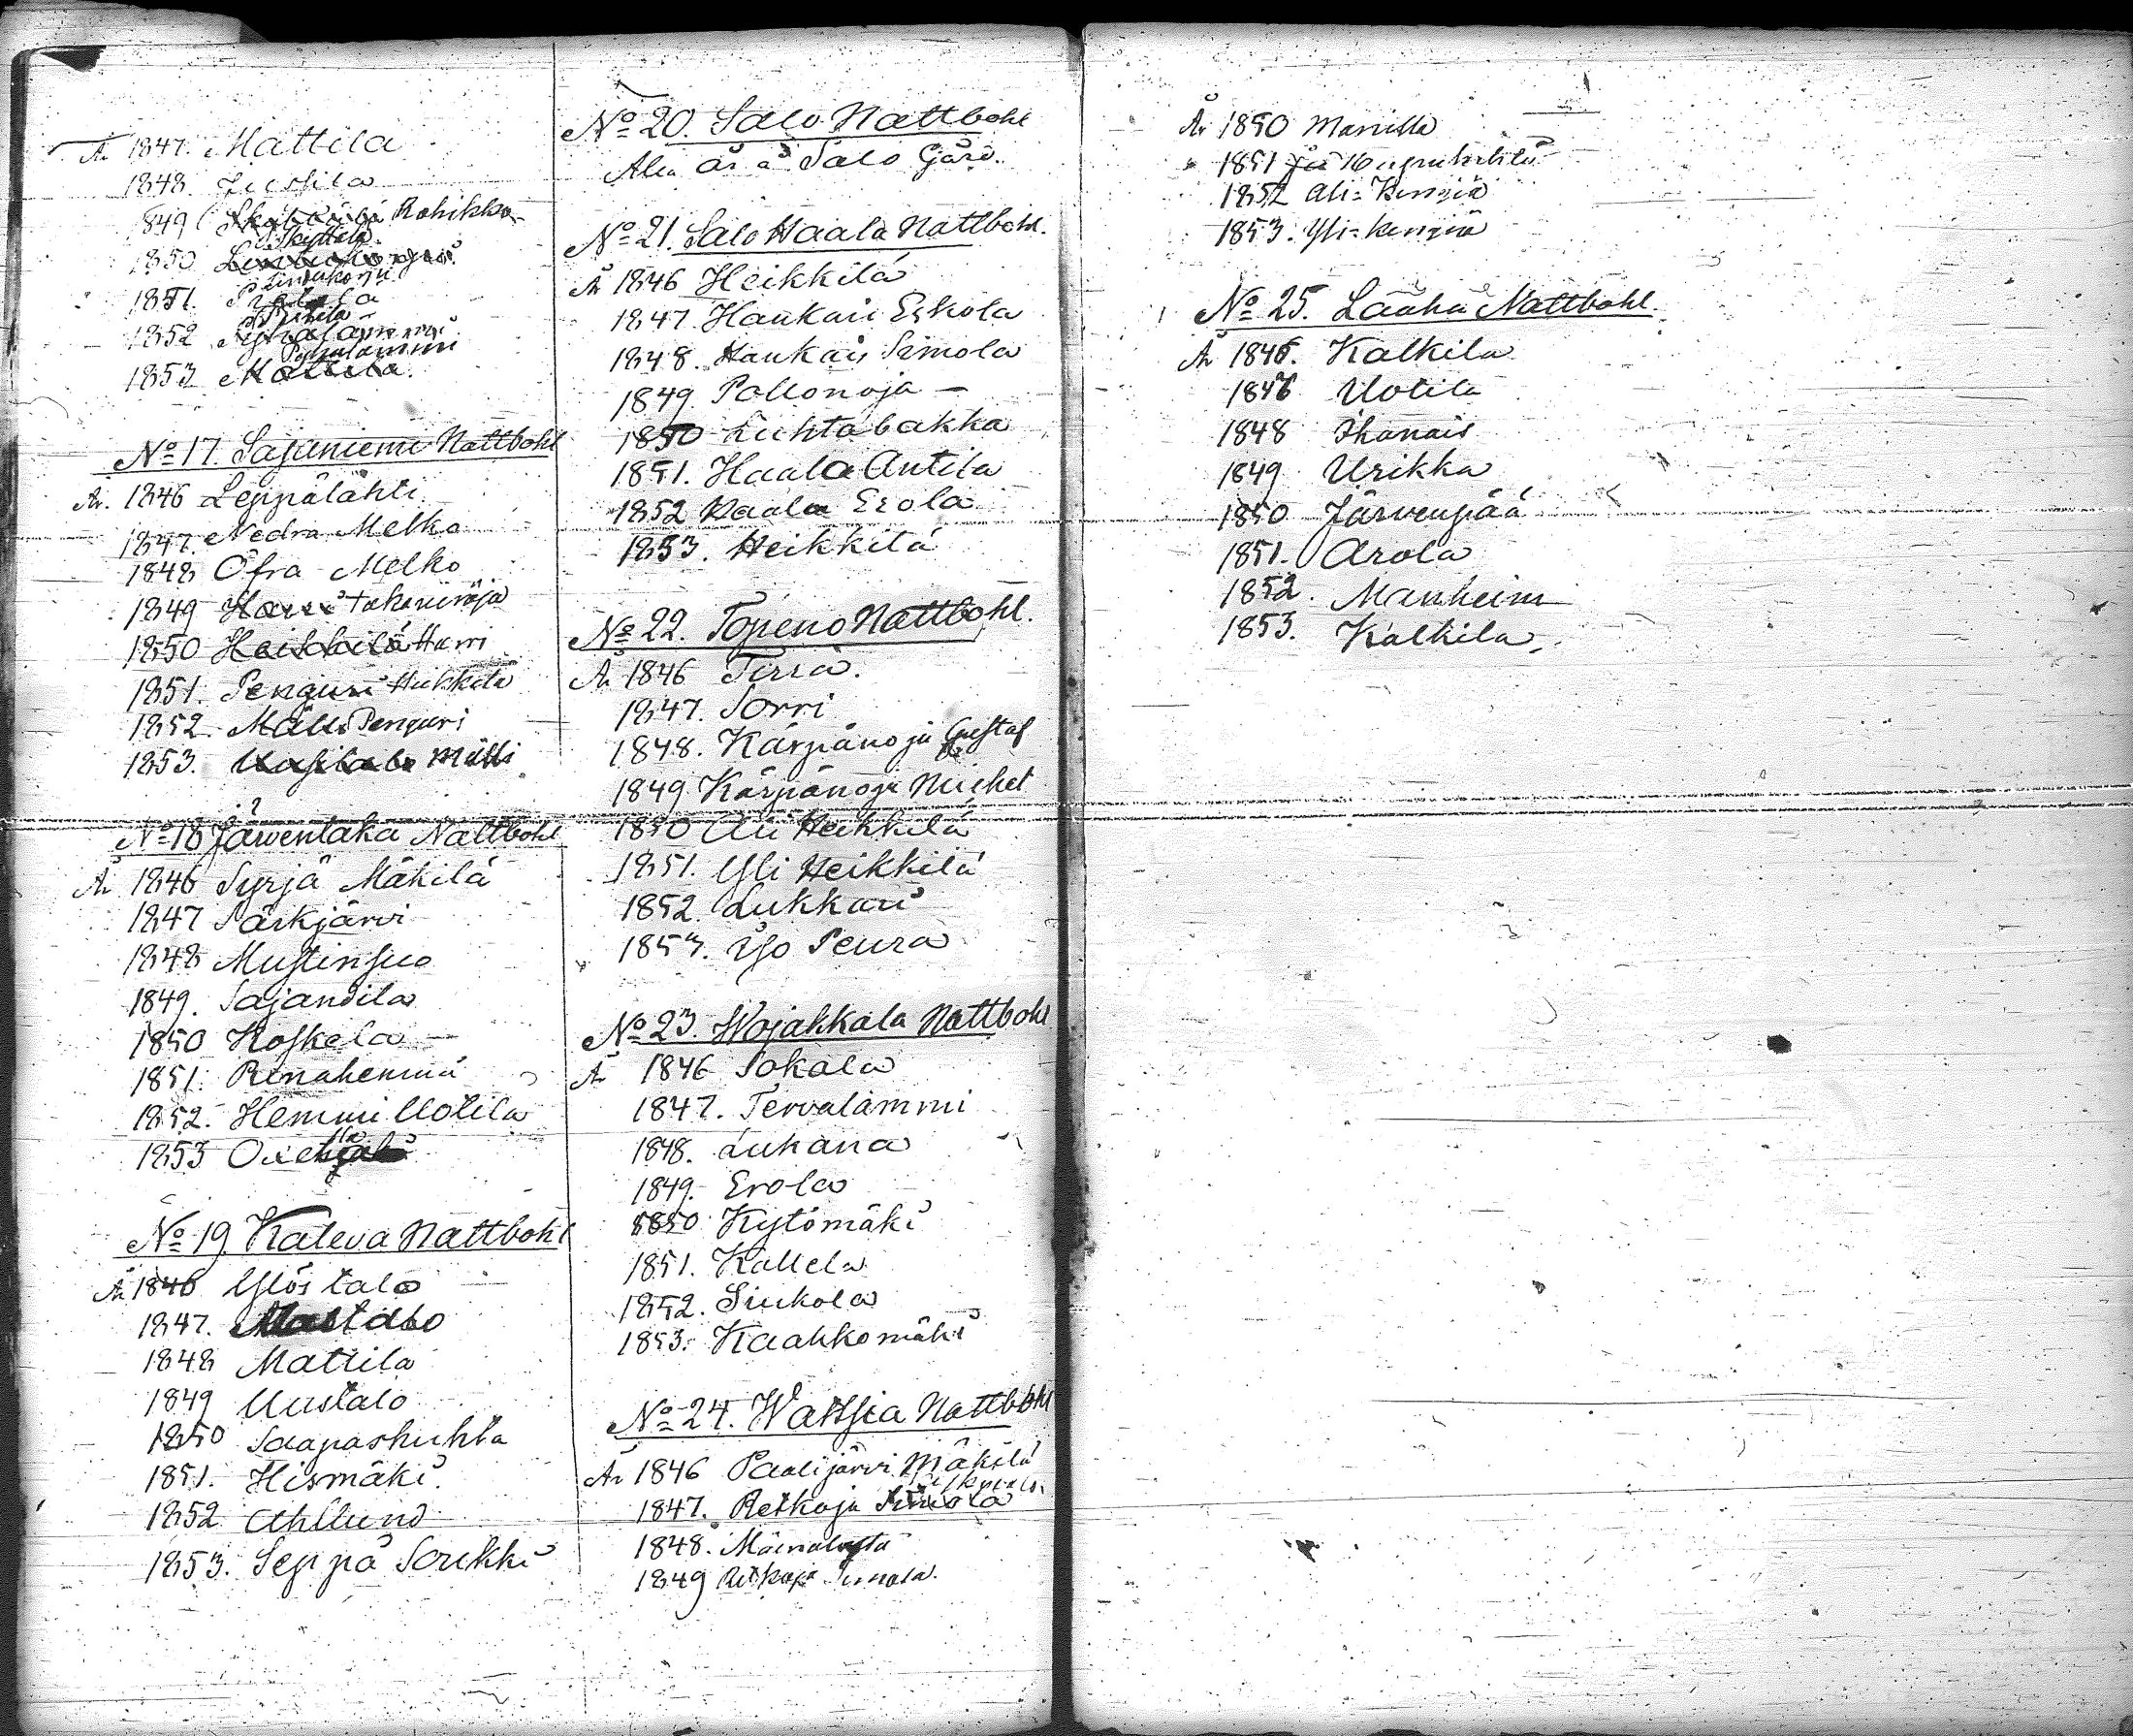 År 1847. Mattila
1848. Jussila
1849 Skyttälä Rohikko
Skyttälä
1850 Linnukorju
Linnukorju
1851. Pietola
Pietilä
1852 Pyhälammi
Pyhälammi
1853 Mattila.
No 17. Sajaniemi Nattbohl
År. 1846 Leppälahti
1847. Nedra Melko
1848 Öfra Melko
1849 Harri Takanivoja
1850 Heikkilä Harri
1851. Penguri Heikkilä
1852. Mälli Penguri
1853. Uusitalo Mälli
No 18 Järventaka Nattbohl
År 1846 Syrjä Mäkilä
1847 Särkjärvi
1848 Mustinsuo
1849. Sajandila
1850 Koskela
1851. Rinahemmi
1852. Hemmi Uotila
1853
No 19. Kaleva Nattbohl
År 1846 Ylöstalo
1847.
1848 Mattila
1849 Uustalo
1850 Saapaskuhta
1851. Hismäki.
1852 Ahllund
1853. Seppä Soukki
No 20. Salo Nattbohl
Alla år å Salo Gård.
No 21. Salo Haala Nattbohl.
År 1846 Heikkilä
1847. Haukari Eskola
1848. Haukari Simola
1849 Pollonoja
1850 Luhtabakka
1851. Haala Antila
1852 Haala Erola
1853. Heikkilä
No 22. Topeno Nattbohl.
År 1846 Tirra.
1847. Sorri
1848. Kärpänoja Gustaf
1849 Kärpänoja Michel
1850 Ali Heikkilä
1851. Yli Heikkilä
1852. Lukkari
1853. Iso Peura
No 23. Wojakkala Nattbohl
År 1846 Sokala
1847. Tervalammi
1848. Luhana
1849. Erola
1850 Kytömäki
1851. Kallela
1852. Siukola
1853. Kaakkomäki
No 24. Wattsia Nattbohl
År 1846 Paalijärvi Mäkilä
1847. Retkoja
1848.
1849 Retkoja Simola.
År 1850 Mannilla
1851
1852 Ali-Kinniä
1853. Yli-Kinniä
No 25. Lauha Nattbohl.
År 1846. Kalkila
1846 Uotila
1848 Ihanais
1849 Urikka
1850 Järvenpää
1851. Arola
1852. Manheim
1853. Kalkila